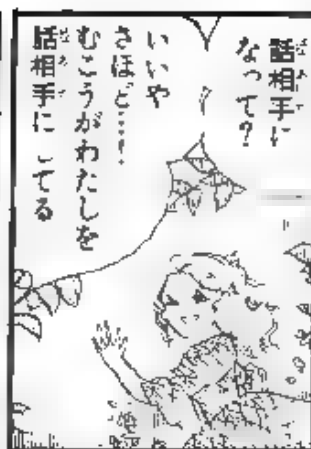 話相手に
なって?
いいや
さほど……
むこうがわたしを
話相手に してる